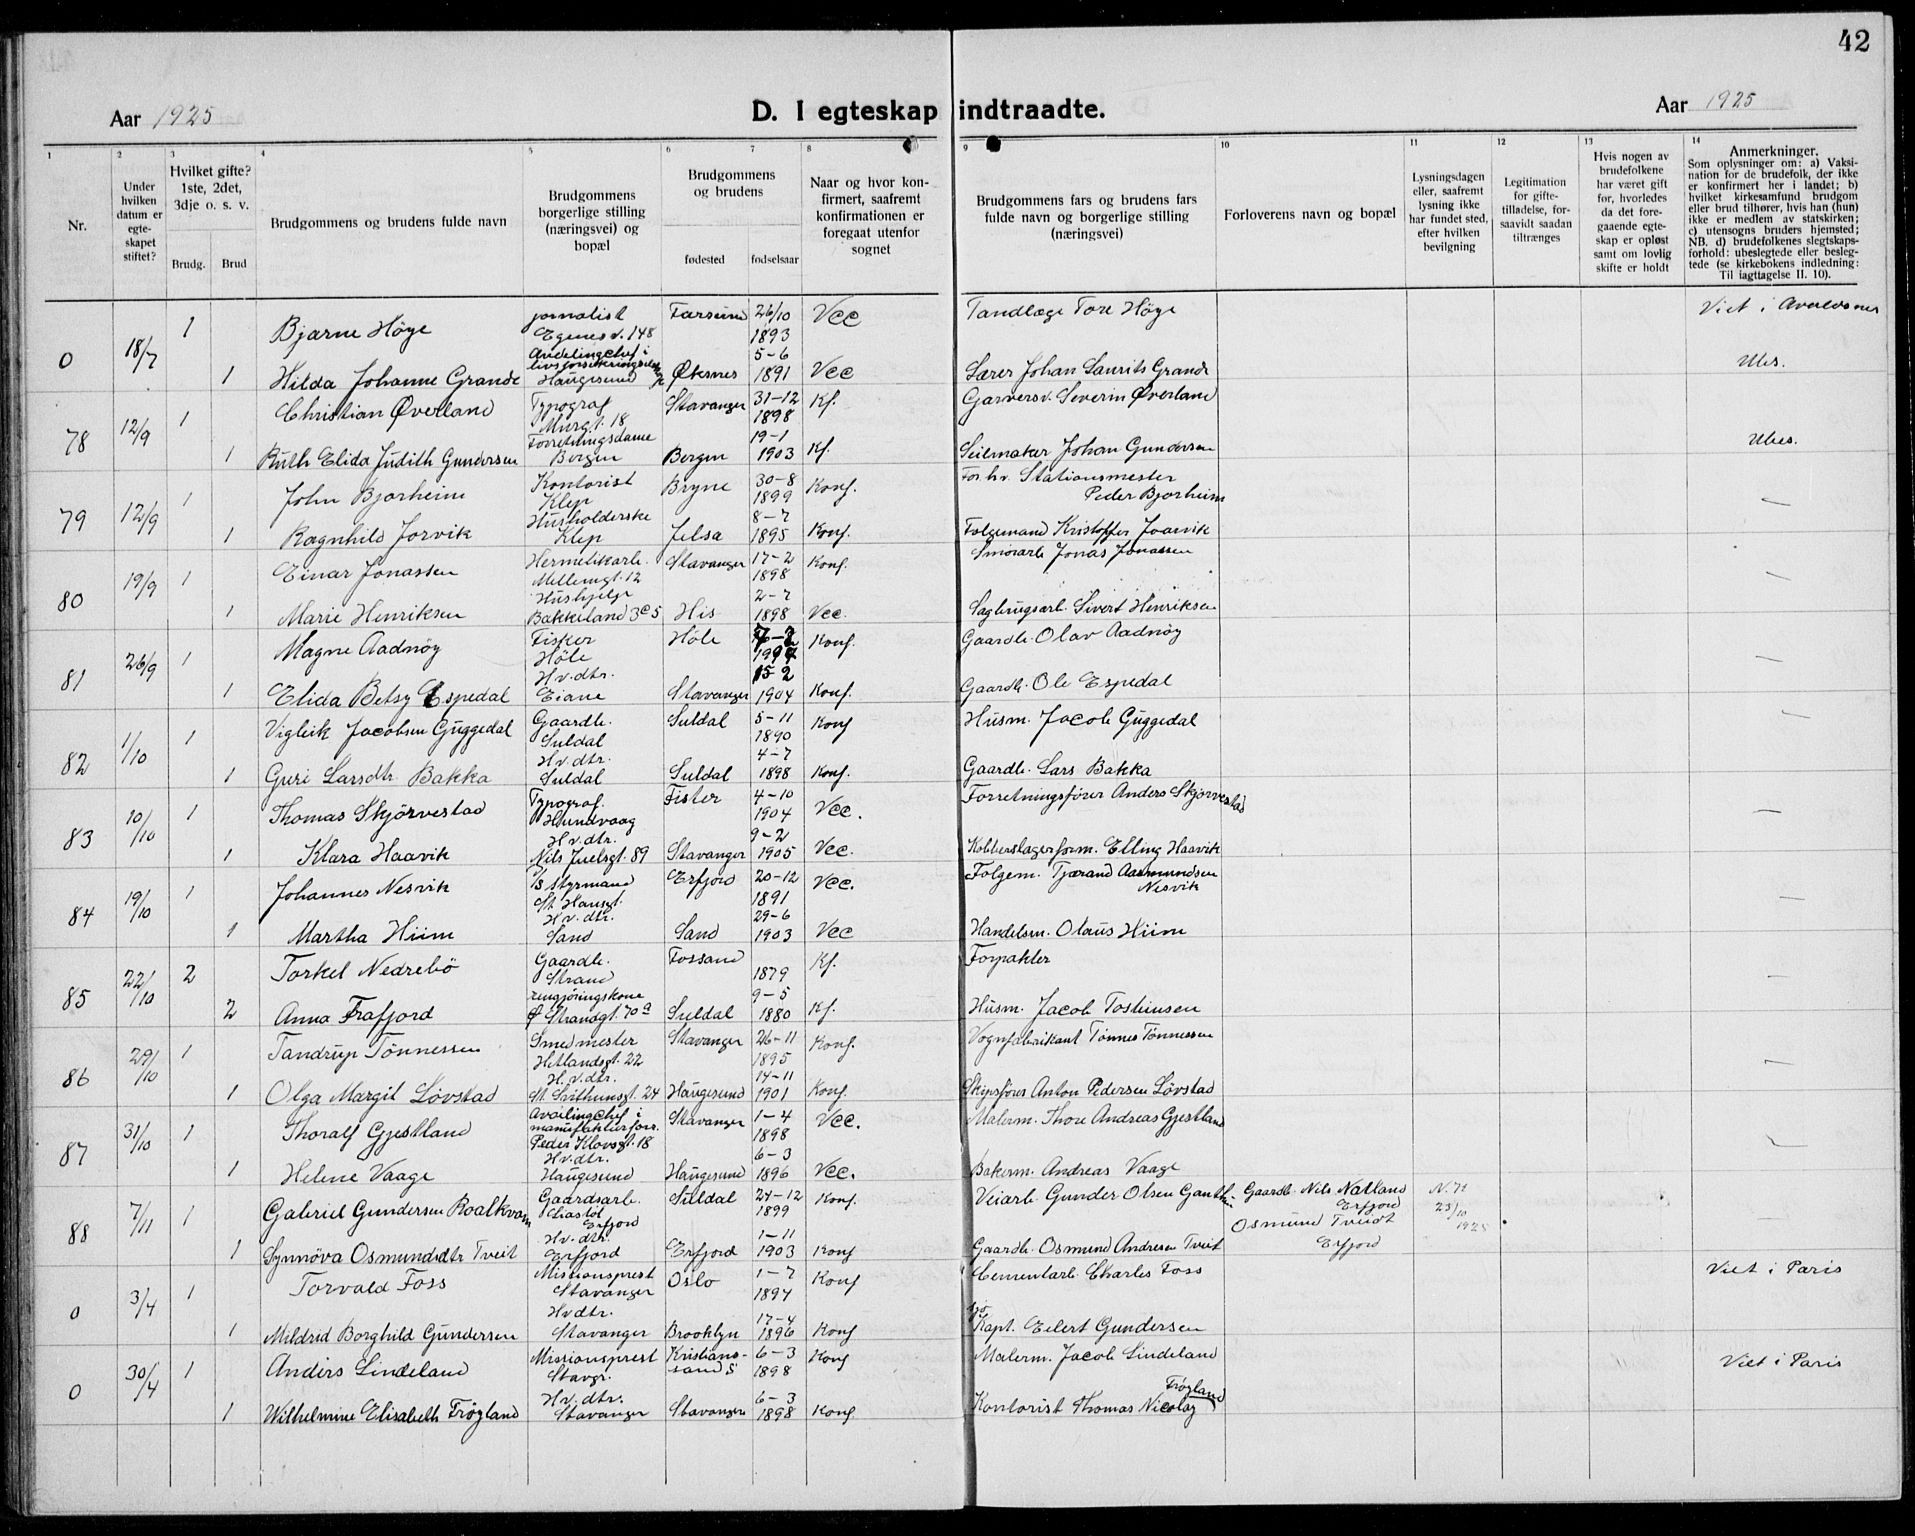 42
Aar 1925
D. I egteskap indtraadte.
Aar 1925
1 2 3 4 5 6 7 8 9 10 11 12 13 14
Nr.
Under hvilken datum er egteskapet stiftet?
Hvilket gifte? 1ste, 2det, 3dje o. s. v.
Brudg. Brud
Brudgommens og brudens fulde navn
Brudgommens borgerlige stilling (næringsvei) og bopæl
Brudgommens og brudens
fødested fødselsaar
Naar og hvor konfirmert, saafremt konfirmationen er foregaat utenfor sognet
Brudgommens fars og brudens fars fulde navn og borgerlige stilling (næringsvei)
Forloverens navn og bopæl
Lysningsdagen eller, saafremt lysning ikke har fundet sted, efter hvilken bevilgning
Legitimation for giftetilladelse, forsaavidt saadan tiltrænges
Hvis nogen av brudefolkene har været gift for, hvorledes da det foregaaende egteskap er opløst samt om lovlig skifte er holdt
Anmerkninger.
Som oplysninger om: a) Vaksination for de brudefolk, der ikke er konfirmert her i landet; b) hvilket kirkesamfund brudgom eller brud tilhører, hvis han (hun) ikke er medlem av statskirken; c) utensogns bruders hjemsted; NB. d) brudefolkenes slegtskapsforhold: ubeslegtede eller beslegtede (se kirkebokens indledning: Til iagttagelse II. 10).
0 18/7 1 Bjarne Høye jornalist Egenesv. 148 Farsund 26/10 1893 Vcc Tandlæge Tore Høye Viet i Avaldsnes
1 Hilda Johanne Grande Avdelingchef i Haugesund Øksnes 5-6 1891 Vcc Lærer Johan Laurits Grande Ubes.
78 12/9 1 Christian Øverland Typograf Murgt. 18 Stavanger 31-12 1898 Kf. Garversv. Severin Øverland
1 Ruth Elida Judith Gundersen Forretningsdame Bergen Bergen 19-1 1903 Kf. Seilmaker Johan Gundersen Ubes.
79 12/9 1 John Bjorheim Kontorist Klep Bryne 30-8 1899 Konf. For hv. Stationsmester Peder Bjorheim —
1 Ragnhild Jorvik Husholderske Klep Jelsa 8-7 1895 Konf. Folgemand Kristoffer Joarvik
80 19/9 1 Einar Jonassen Hermetikarb. Mellemgt. 12 Stavanger 17-2 1898 Konf. Jonas Jonassen —
1 Marie Henriksen Hushjelp Bakkeland 3c 5 His 2-7 1898 Vcc. Sagbrugsarb. Sivert Henriksen
81 26/9 1 Magne Aadnøy Fisker Høle Høle Konf. Gaardb. Olav Aadnøy —
1 Elida Betsy Espedal Hv. dtr. Eiane Stavanger 15 2 1904 Konf. Gaardb. Ole Espedal
82 1/10 1 Vigleik Jacobsen Guggedal Gaardb. Suldal Suldal 5-11 1890 Konf Husm. Jacob Guggedal —
1 Guri Larsdtr. Bakka Hv. dtr. Suldal Suldal 4-7 1898 Konf. Gaardb. Lars Bakka
83 10/10 1 Thomas Skjørvestad Typograf. Hundvaag Fister 4-10 1904 Vcc. Forretningsfører Anders Skjørvestad —
1 Klara Haavik Hv. dtr. Nils Juelsgt. 89 Stavanger 9-2 1905 Vcc. Kobberslagerform. Elling Haavik
84 19/10 1 Johannes Nesvik Styrmand St. Hansgt. Erfjord 20-12 1891 Vcc. Folgem. Tjærand Aasmundsen Nesvik —
1 Martha Hiim Hv. dtr. Sand Sand 29-6 1903 Vcc Handelsm. Olaus Hiim
85 22/10 2 Torkel Nedrebø Gaardb. Strand Fossand 1879 Kf. Forpakter —
2 Anna Frafjord rengjøringskone Ø Strandgt. 70a Suldal 9-5 1880 Kf. Husm. Jacob Tostensen
86 29/10 1 Tandrup Tønnessen Smedmester Hetlandsgt. 22 Stavanger 26-11 1895 Konf. Vognfabrikant Tønnes Tønnessen —
1 Olga Margit Løvstad H. v. dtr. St. Svithunsgt. 24 Haugesund 14-11 1901 Konf. Skipsfører Anton Pedersen Løvstad
87 31/10 1 Thoralf Gjestland Avdelingchef i manufakturforr. Peder Klovsgt. 18 Stavanger 1-4 1898 Vcc. Malerm. Thore Andreas Gjestland —
1 Helene Vaage Hv. dtr. Haugesund Haugesund 6-3 1896 Vcc. Bakerm. Andreas Vaage
88 7/11 1 Gabriel Gundersen Roalkvam Gaardsarb. Liastøl Erfjord Suldal 24-12 1899 Konf. Veiarb. Gunder Olsen Gaardb. Nils Natland Erfjord N. 71 23/10 1925 —
1 Synnøva Osmundsdtr Tveit Hv. dtr. Erfjord Erfjord 1-11 1903 Konf Gaardb. Osmund Andresen Tveit Osmund Tveidt Erfjord
0 3/4 1 Torvald Foss Missionsprest Stavanger Oslo 1-7 1894 Konf Cementarb. Charles Foss Viet i Paris
1 Mildrid Borghild Gundersen Hv dtr. Stavanger Brooklyn 17-4 1896 Konf Kapt. Eilert Gundersen
0 30/4 1 Anders Lindeland Missionsprest Stavgr. Kristianssand S 6-3 1898 Konf Malerm. Jacob Lindeland Viet i Paris
1 Wilhelmine Elisabeth Frøyland Hv. dtr. Stavanger Stavanger 6-3 1898 Konf. Kontorist Thomas Nicolay Frøyland